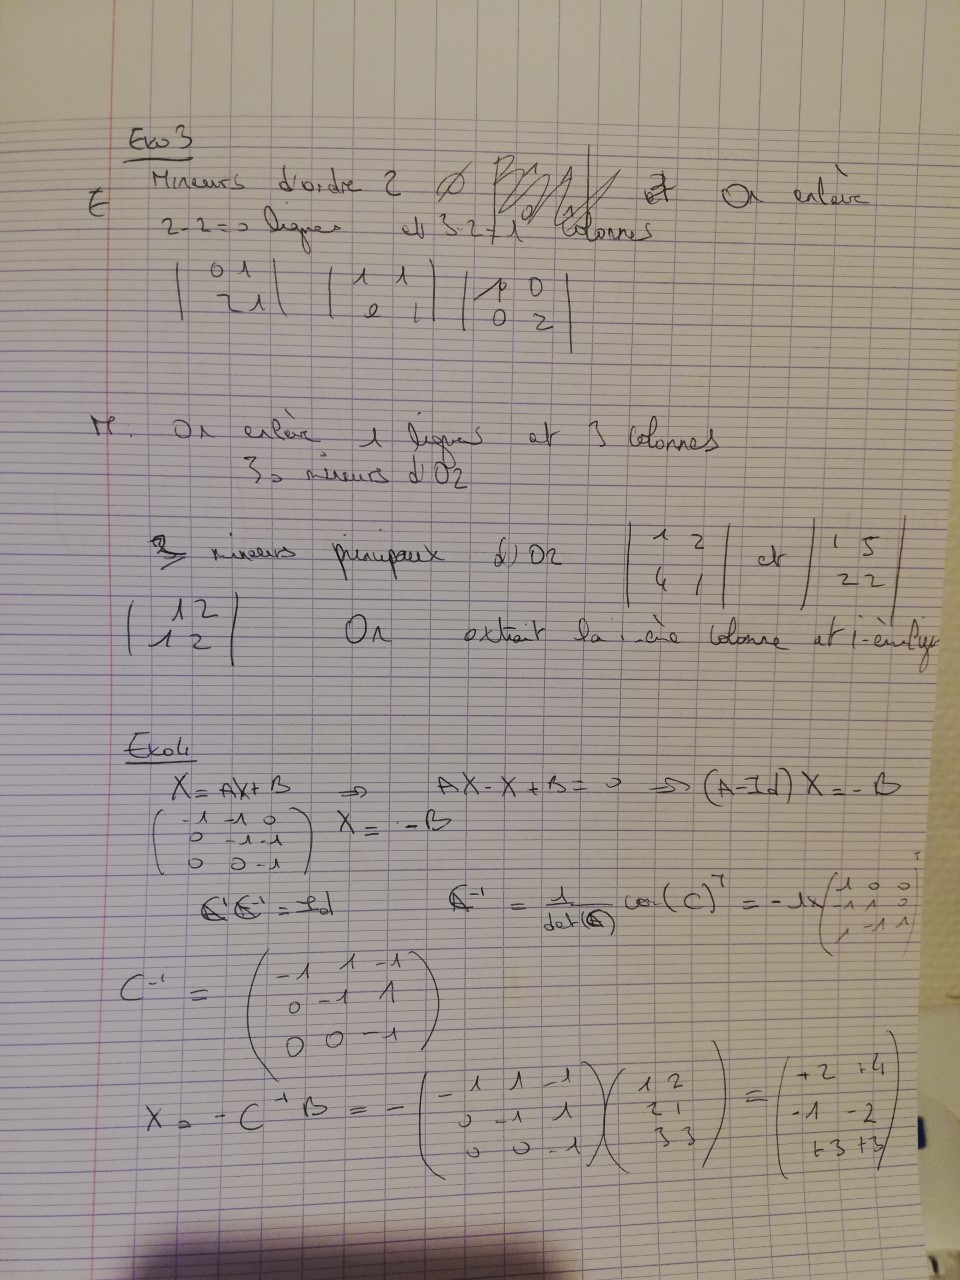 Exo 3
E Mineurs d'ordre 2 On enlève
2-2=0 lignes et 3-2=1 colonnes
| 0 1 | | 1 1 | | 1 0 |
| 2 1 | | 0 1 | | 0 2 |
M. On enlève 1 lignes et 3 colonnes
30 mineurs d'O2
3 mineurs principaux d'O2 | 1 2 | et | 1 5 |
| 4 1 | | 2 2 |
| 1 2 |
| 1 2 | On extrait la i-ère colonne et i-ème
Exo 4
X = AX + B => AX - X + B = 0 => (A - Id) X = - B
( -1 -1 0 )
( 0 -1 -1 ) X = - B
( 0 0 -1 )
C C⁻¹ = Id C⁻¹ = 1/det(C) com(C)ᵀ = -1 × ( 1 0 0 )ᵀ
( -1 1 0 )
( 1 -1 1 )
C⁻¹ = ( -1 1 -1 )
( 0 -1 1 )
( 0 0 -1 )
X = - C⁻¹ B = - ( -1 1 -1 ) ( 1 2 ) = ( +2 +4 )
( 0 -1 1 ) ( 2 1 ) ( -1 -2 )
( 0 0 -1 ) ( 3 3 ) ( +3 +3 )